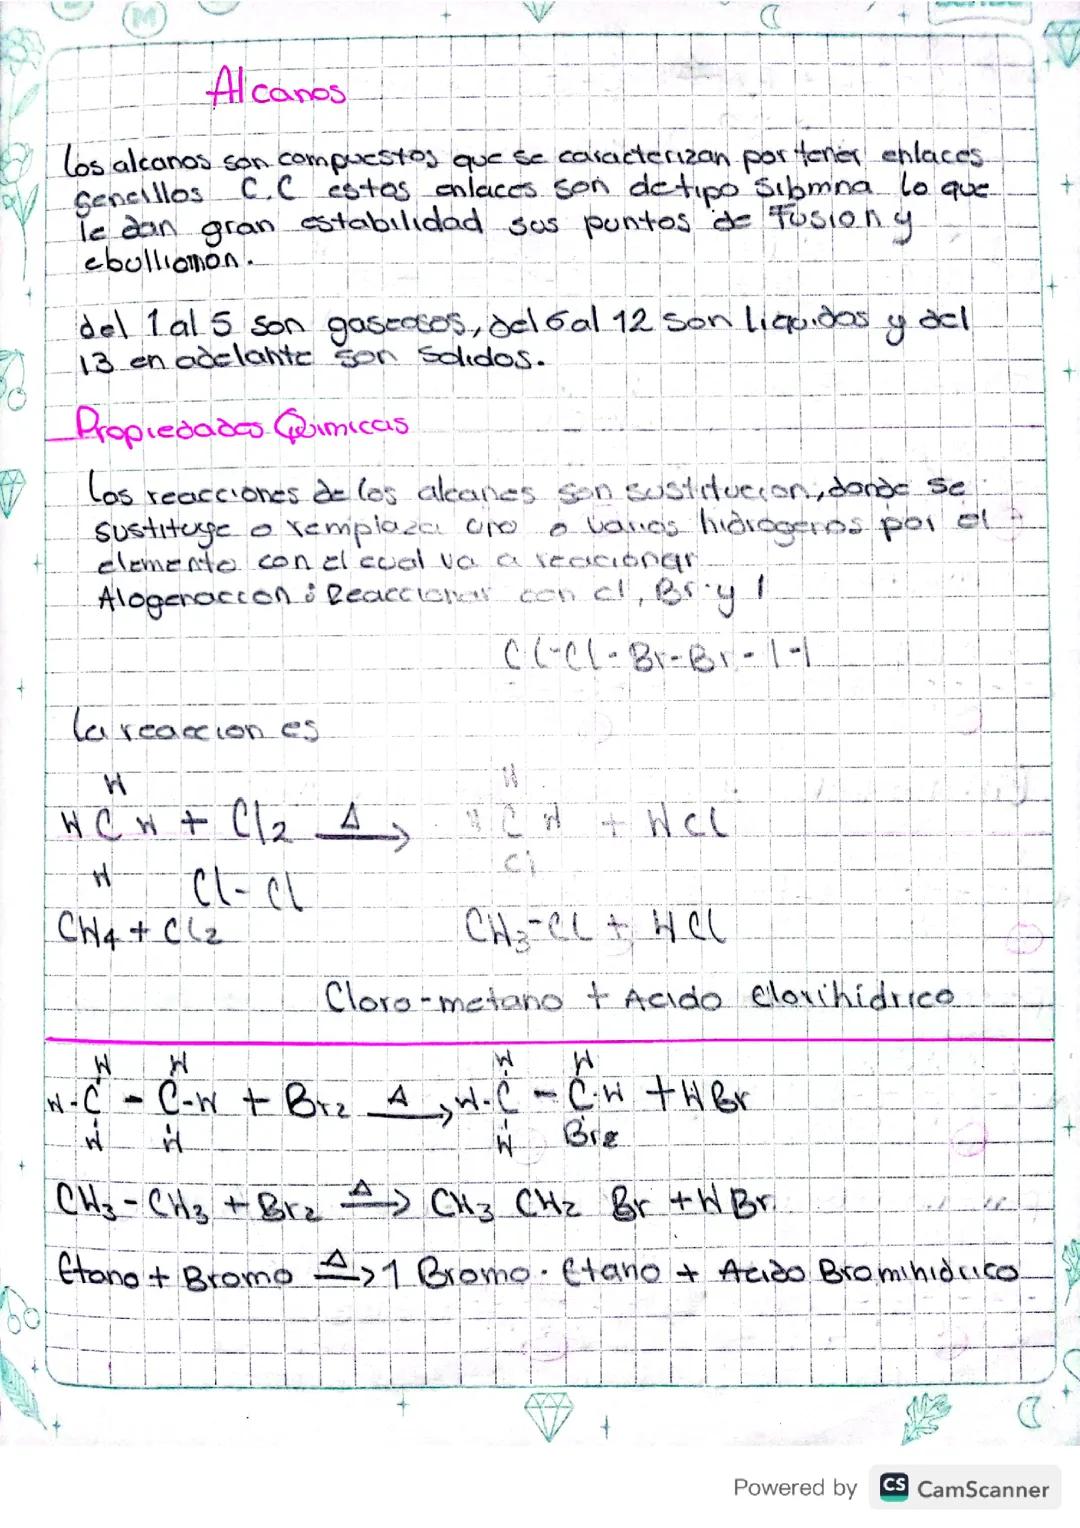 M
Alcanos
Los alcanos son compuestos que se caracterizan por tener enlaces
sencillos C.C estos enlaces son de tipo Sibmna lo que
le dan gran estabilidad sus puntos de Fusion y
ebulliomon.
del 1 al 5 son gaseosos, del 6 al 12 son liquidos y del
13 en adelante son Solidos.
Propiedades Quimicas
Los reacciones de los alcanes son sustitucion, donde se
sustituye o remplaza uno o varios hidrogenos por el
elemento con el cual va a reaccionar
Alogenaccion : Reaccionar con cl, Br y I
Cl-Cl - Br-Br - I-I
La reaccion es
H H
H C H + Cl2 Δ→ H C H + HCl
H Cl-Cl Cl
CH4 + Cl2 CH3-Cl + HCl
Cloro-metano + Acido Clorihidrico
H H H H
H-C - C-H + Br2 Δ→ H-C - C-H + HBr
H H H Br2
CH3-CH3 + Br2 Δ→ CH3 CH2 Br + HBr.
Etano + Bromo Δ→ 1 Bromo-Etano + Acido Bromihidrico
Powered by CS CamScanner